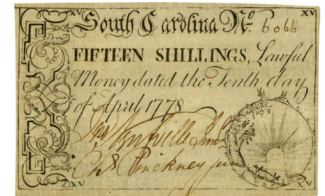 XV XV
South Carolina No. 6066
FIFTEEN SHILLINGS, Lawful
Money dated the Tenth day
of April 1778
Chs Pinckney jun
XV XV